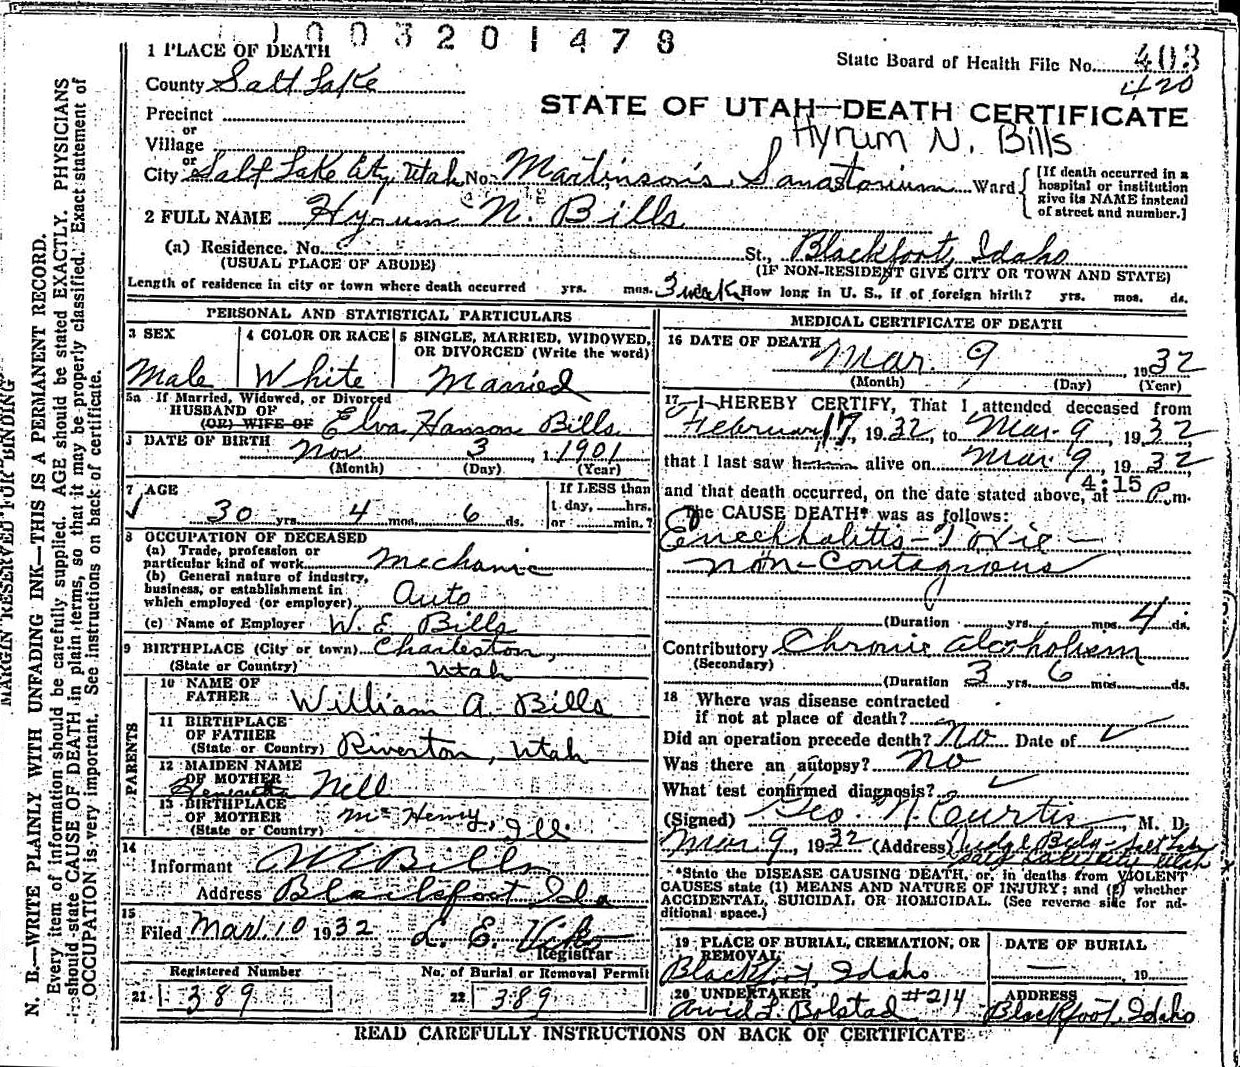 1003201478
1 PLACE OF DEATH
State Board of Health File No. 403
County Salt Lake
420
STATE OF UTAH—DEATH CERTIFICATE
Precinct
or
Hyrum N. Bills
Village
or
City Salt Lake City Utah No. Martinson's Sanastorium Ward
[If death occurred in a
hospital or institution
give its NAME instead
of street and number.]
2 FULL NAME Hyrum N. Bills
(a) Residence. No. St., Blackfoot, Idaho
(USUAL PLACE OF ABODE) (IF NON-RESIDENT GIVE CITY OR TOWN AND STATE)
Length of residence in city or town where death occurred yrs. mos. 3 week How long in U. S., if of foreign birth? yrs. mos. ds.
PERSONAL AND STATISTICAL PARTICULARS
3 SEX
Male
4 COLOR OR RACE
White
5 SINGLE, MARRIED, WIDOWED,
OR DIVORCED (Write the word)
Married
5a If Married, Widowed, or Divorced
HUSBAND OF
(OR) WIFE OF Elva Hanson Bills
DATE OF BIRTH
Nov 3, 1901
(Month) (Day) (Year)
7 AGE
30 yrs. 4 mos. 6 ds.
If LESS than
1 day, hrs.
or min.?
8 OCCUPATION OF DECEASED
(a) Trade, profession or
particular kind of work Mechanic
(b) General nature of industry,
business, or establishment in
which employed (or employer) Auto
(c) Name of Employer W. E. Bills
9 BIRTHPLACE (City or town) Charleston,
(State or Country) Utah
PARENTS
10 NAME OF
FATHER William A. Bills
11 BIRTHPLACE
OF FATHER
(State or Country) Riverton, Utah
12 MAIDEN NAME
OF MOTHER
Henrietta Nell
13 BIRTHPLACE
OF MOTHER
(State or Country) Mc Henry, Ill.
14
Informant W E Bills
Address Blackfoot Ida
15
Filed Mar. 10 1932 L. E.
Registrar
Registered Number
21 389
No. of Burial or Removal Permit
22 389
MEDICAL CERTIFICATE OF DEATH
16 DATE OF DEATH
Mar. 9 1932
(Month) (Day) (Year)
17 I HEREBY CERTIFY, That I attended deceased from
February 17, 1932, to Mar. 9, 1932
that I last saw h alive on Mar 9, 1932
and that death occurred, on the date stated above, at 4:15 P.m.
The CAUSE DEATH* was as follows:
Enechhalitis-Toxie-
non-Contagious
(Duration yrs. mos. 4 ds.
Contributory Chronic alcoholism
(Secondary)
(Duration 3 yrs. 6 mos. ds.
18 Where was disease contracted
if not at place of death?
Did an operation precede death? No Date of
Was there an autopsy? No
What test confirmed diagnosis?
(Signed) Geo. N. Curtis, M. D.
Mar 9, 1932 (Address) Judge Bldg-Salt Lake
Salt Lake City Utah
*State the DISEASE CAUSING DEATH, or, in deaths from VIOLENT
CAUSES state (1) MEANS AND NATURE OF INJURY; and (2) whether
ACCIDENTAL, SUICIDAL OR HOMICIDAL. (See reverse side for ad-
ditional space.)
19 PLACE OF BURIAL, CREMATION, OR
REMOVAL
Blackfoot, Idaho
DATE OF BURIAL
19
20 UNDERTAKER #214
Arvid L. Bolstad
ADDRESS
Blackfoot, Idaho
READ CAREFULLY INSTRUCTIONS ON BACK OF CERTIFICATE
MARGIN RESERVED FOR BINDING
N. B.—WRITE PLAINLY WITH UNFADING INK—THIS IS A PERMANENT RECORD.
Every item of information should be carefully supplied. AGE should be stated EXACTLY. PHYSICIANS
should state CAUSE OF DEATH in plain terms, so that it may be properly classified. Exact statement of
OCCUPATION is very important. See instructions on back of certificate.